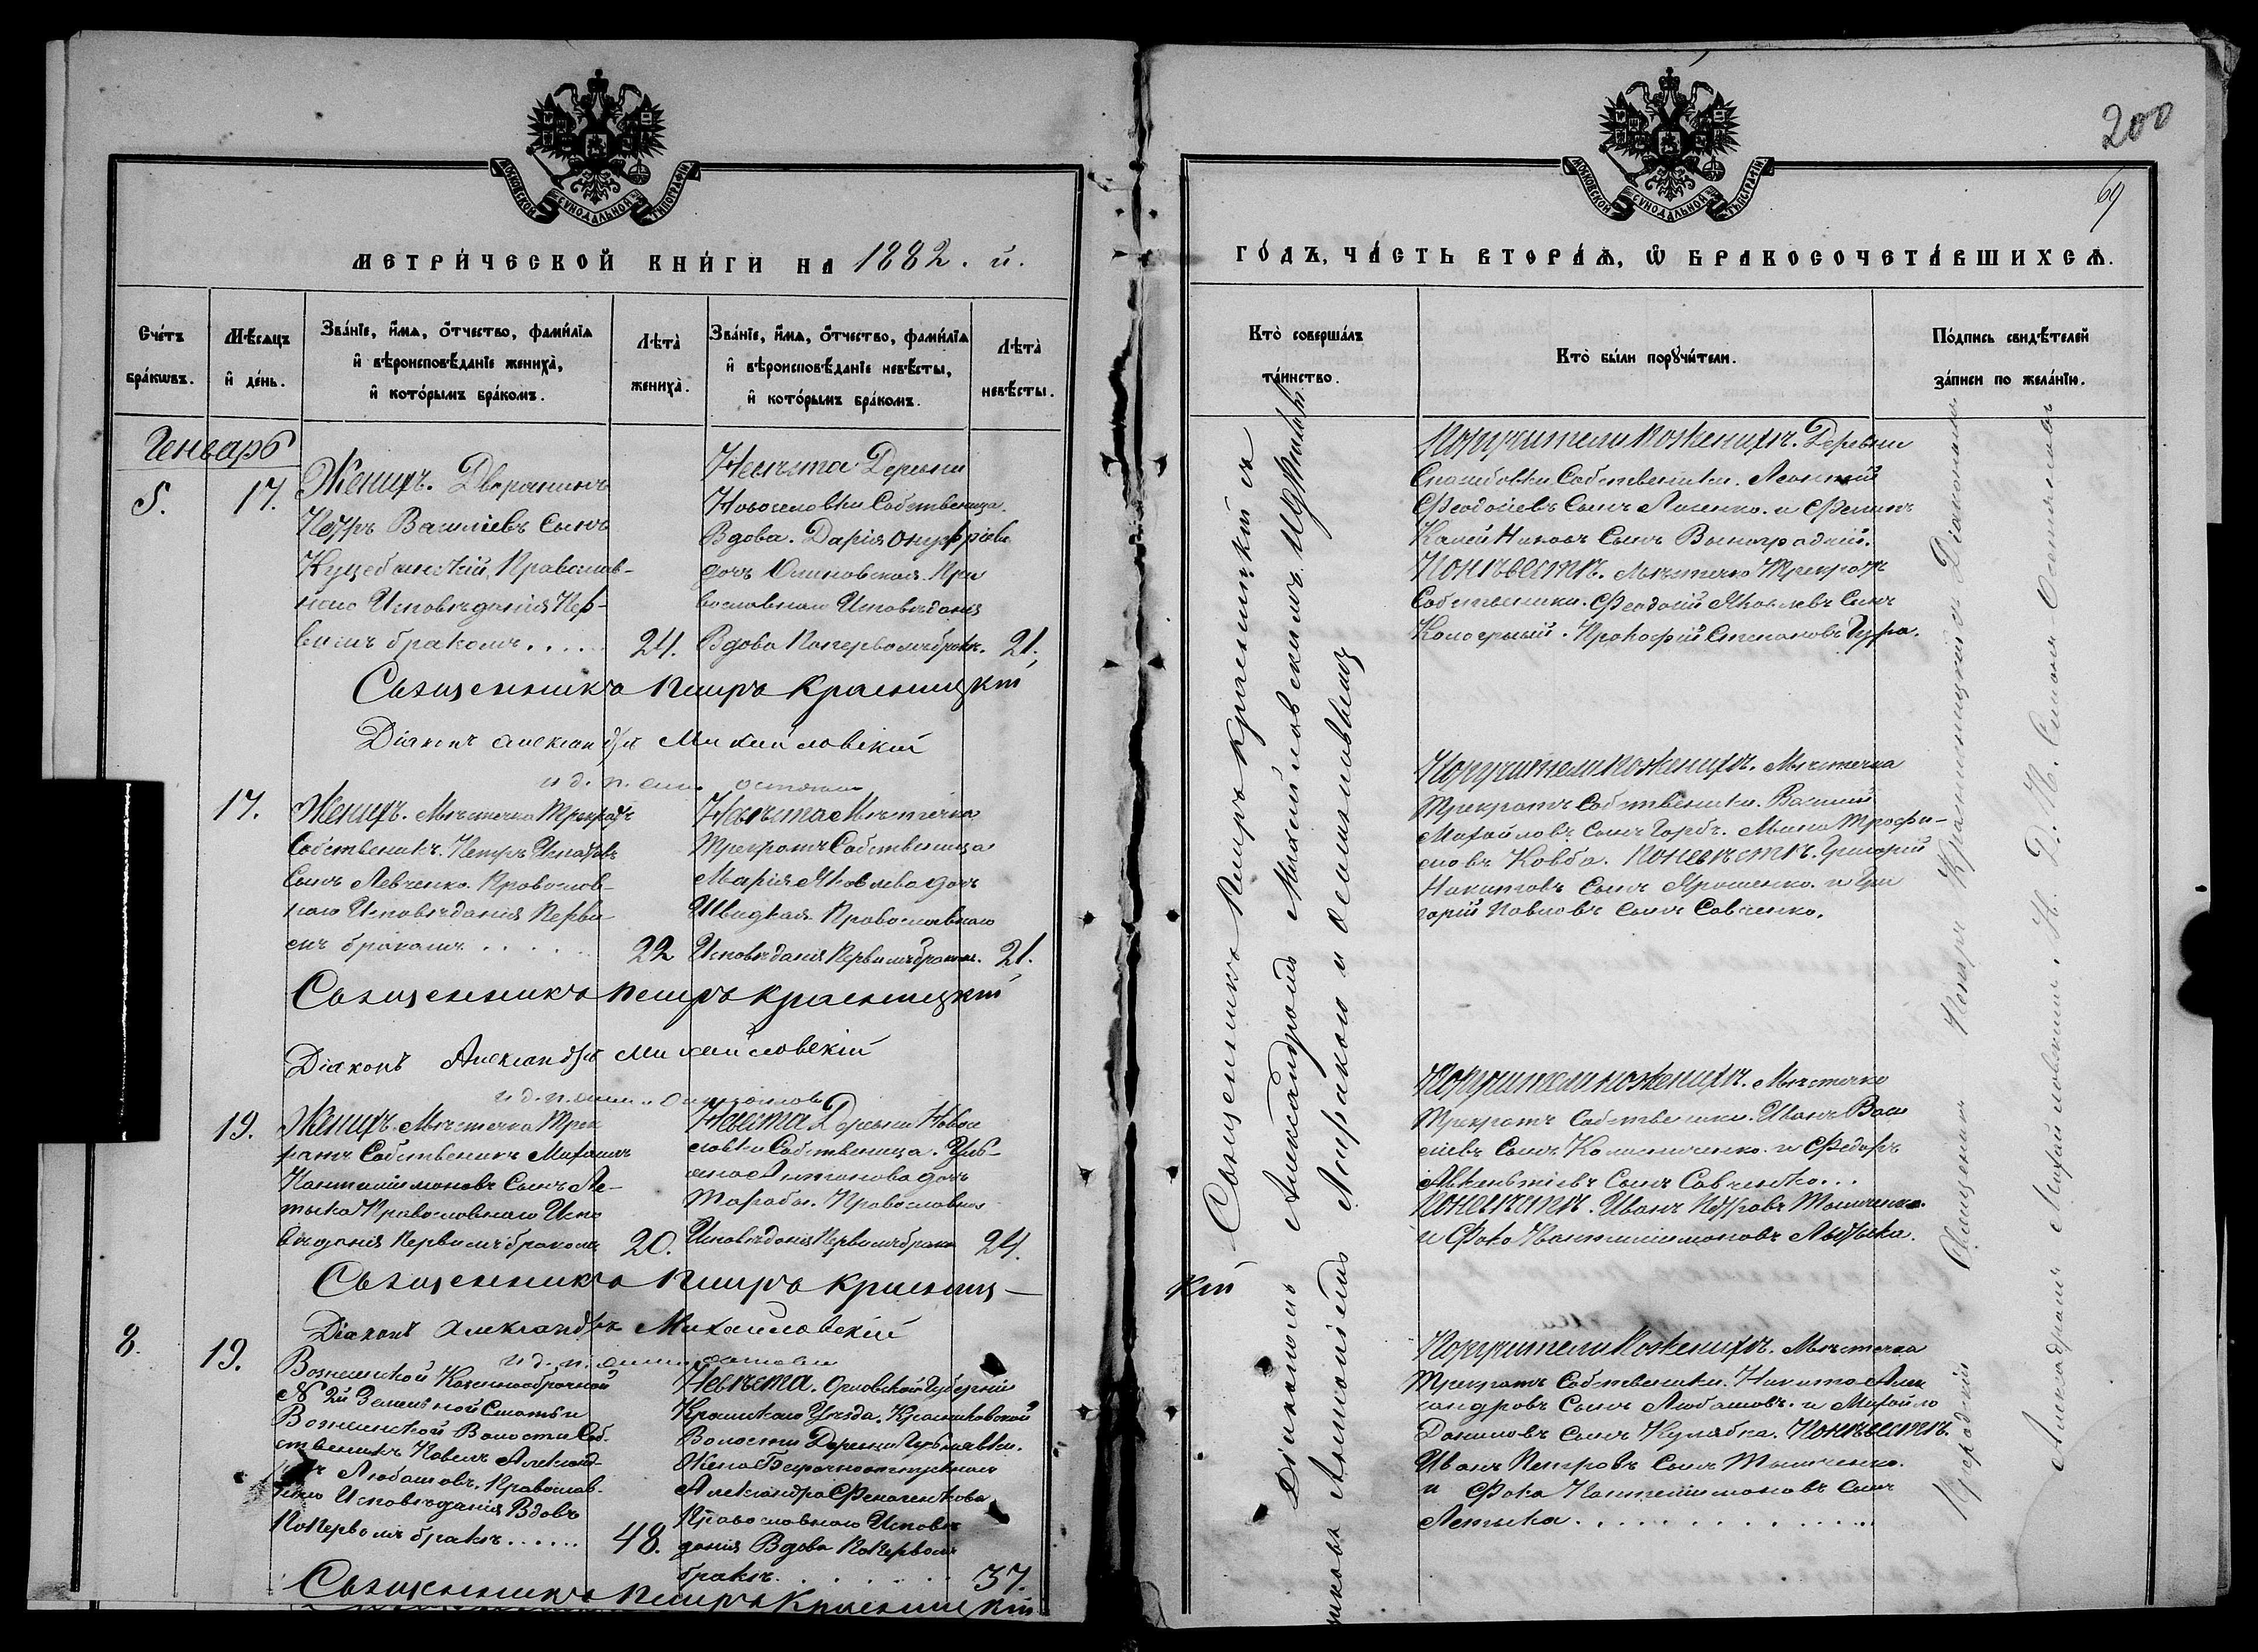 МОСКОВСКОЙ СѴНОДАЛЬНОЙ ТИПОГРАФІИ
МЕТРИ́ЧЕСКОЙ КНИ́ГИ НА 1882. й.
Сче́тъ бра́кѡвъ.
Мѣ́сяцъ и҆ де́нь.
Зва́нїе, и҆́мѧ, ѻ҆́тчество, фами́лїѧ
и҆ вѣроисповѣ́данїе жениха̀,
и҆ кото́рымъ бра́комъ.
Лѣта̀ жениха̀.
Зва́нїе, и҆́мѧ, ѻ҆́тчество, фами́лїѧ
и҆ вѣроисповѣ́данїе невѣ́сты,
и҆ кото́рымъ бра́комъ.
Лѣта̀ невѣ́сты.
Генварь
5.
17.
Женихъ. Дворянинъ
Петръ Василіевъ Сынъ
Православ-
наго Исповѣданія Пер-
вымъ бракомъ.....
24.
Невѣста Деревни
Новоселовки Собственица.
Вдова. Дарія Онуфріева
дочь Осиновская. Пра
вославнаго Исповѣданія
Вдова Попервомъ бракѣ.
21.
Священникъ Петръ Красницкій
Діаконъ Александръ Михайловскій
17.
Женихъ. Мѣстечка Трикратъ
Собственикъ. Петръ Игнатовъ
Сынъ Левченко. Православ-
наго Исповѣданія Первы-
мъ бракомъ.....
22
Невѣста Мѣстечка
Трикратъ Собственица
Марія Яковлева дочь
Швидкая. Православнаго
Исповѣданія Первымъ бракомъ.
21.
Священникъ Петръ Красницкій
Діаконъ Александръ Михайловскій
19.
Женихъ. Мѣстечка Трик
ратъ Собственикъ Михаилъ
Пантелиимоновъ Сынъ Ле-
тыка Православнаго Испо
вѣданія Первымъ бракомъ
20.
Невѣста Деревни Новосе
ловки Собственица.
Антонова дочь
Православнаго
Исповѣданія Первымъ бракомъ
24.
Священникъ Петръ Красниц-
кій
Діаконъ Александръ Михайловскій
8.
19.
Вознесенской Казеннооброчной
№ 2й Земельной Статьи
Вознесенской Волости Соб-
ственикъ Павелъ Александ-
Любашовъ. Православ-
наго Исповѣданія Вдовъ
Попервомъ бракѣ......
48.
Невѣста. Орловской Губерніи
Кромскаго Уѣзда.
Волости Деревни
Жена Безсрочноотпускнаго
Александра
Православнаго Исповѣ
данія Вдова Попервомъ
бракѣ.
37.
Священникъ Петръ Красницкій
200
69
МОСКОВСКОЙ СѴНОДАЛЬНОЙ ТИПОГРАФІИ
ГО́ДЪ, ЧА́СТЬ ВТОРА́Ѧ, Ѽ БРАКОСОЧЕТА́ВШИХСѦ.
Кто̀ соверша́лъ
та́инство.
Кто̀ бы́ли порꙋчи́тели.
По́дпись свидѣ́телей
за́писи по жела́нїю.
Священникъ Петръ Красницкій съ
Діакономъ Александромъ Михайловскимъ
Поручители Поженихѣ. Деревни
Собственики. Леонтій
Феодосіевъ Сынъ Лисенко. и Филипъ
Сынъ Виноградній.
Поневѣстѣ. Мѣстечка Трикратъ
Собственики. Феодосій Яковлевъ Сынъ
Прокофій Степановъ Гура.
Поручители поженихѣ. Мѣстечка
Трикратъ Собственики. Василій
Михайловъ Сынъ Горбъ. Мина Трофи-
мовъ Ковба. Поневѣстѣ. Григорій
Никитовъ Сынъ Ярошенко. и Гри
горій Павловъ Сынъ Савченко.
Поручители поженихѣ. Мѣстечка
Трикратъ Собственики. Иванъ Васи
ліевъ Сынъ Колесниченко. и Федоръ
Сынъ Савченко...
Поневѣстѣ. Иванъ Петровъ
и Фока Пантелиимоновъ Летыка.
Поручители Поженихѣ. Мѣстечка
Трикратъ Собственики. Никита Алек
сандровъ Сынъ Любашовъ. и Михайло
Даниловъ Сынъ Кулябка. Поневѣстѣ.
Иванъ Петровъ Сынъ
и Фока Пантелиимоновъ Сынъ
Летыка..............
Священникъ Петръ Красницкій Діаконъ
Александръ Михайловскій